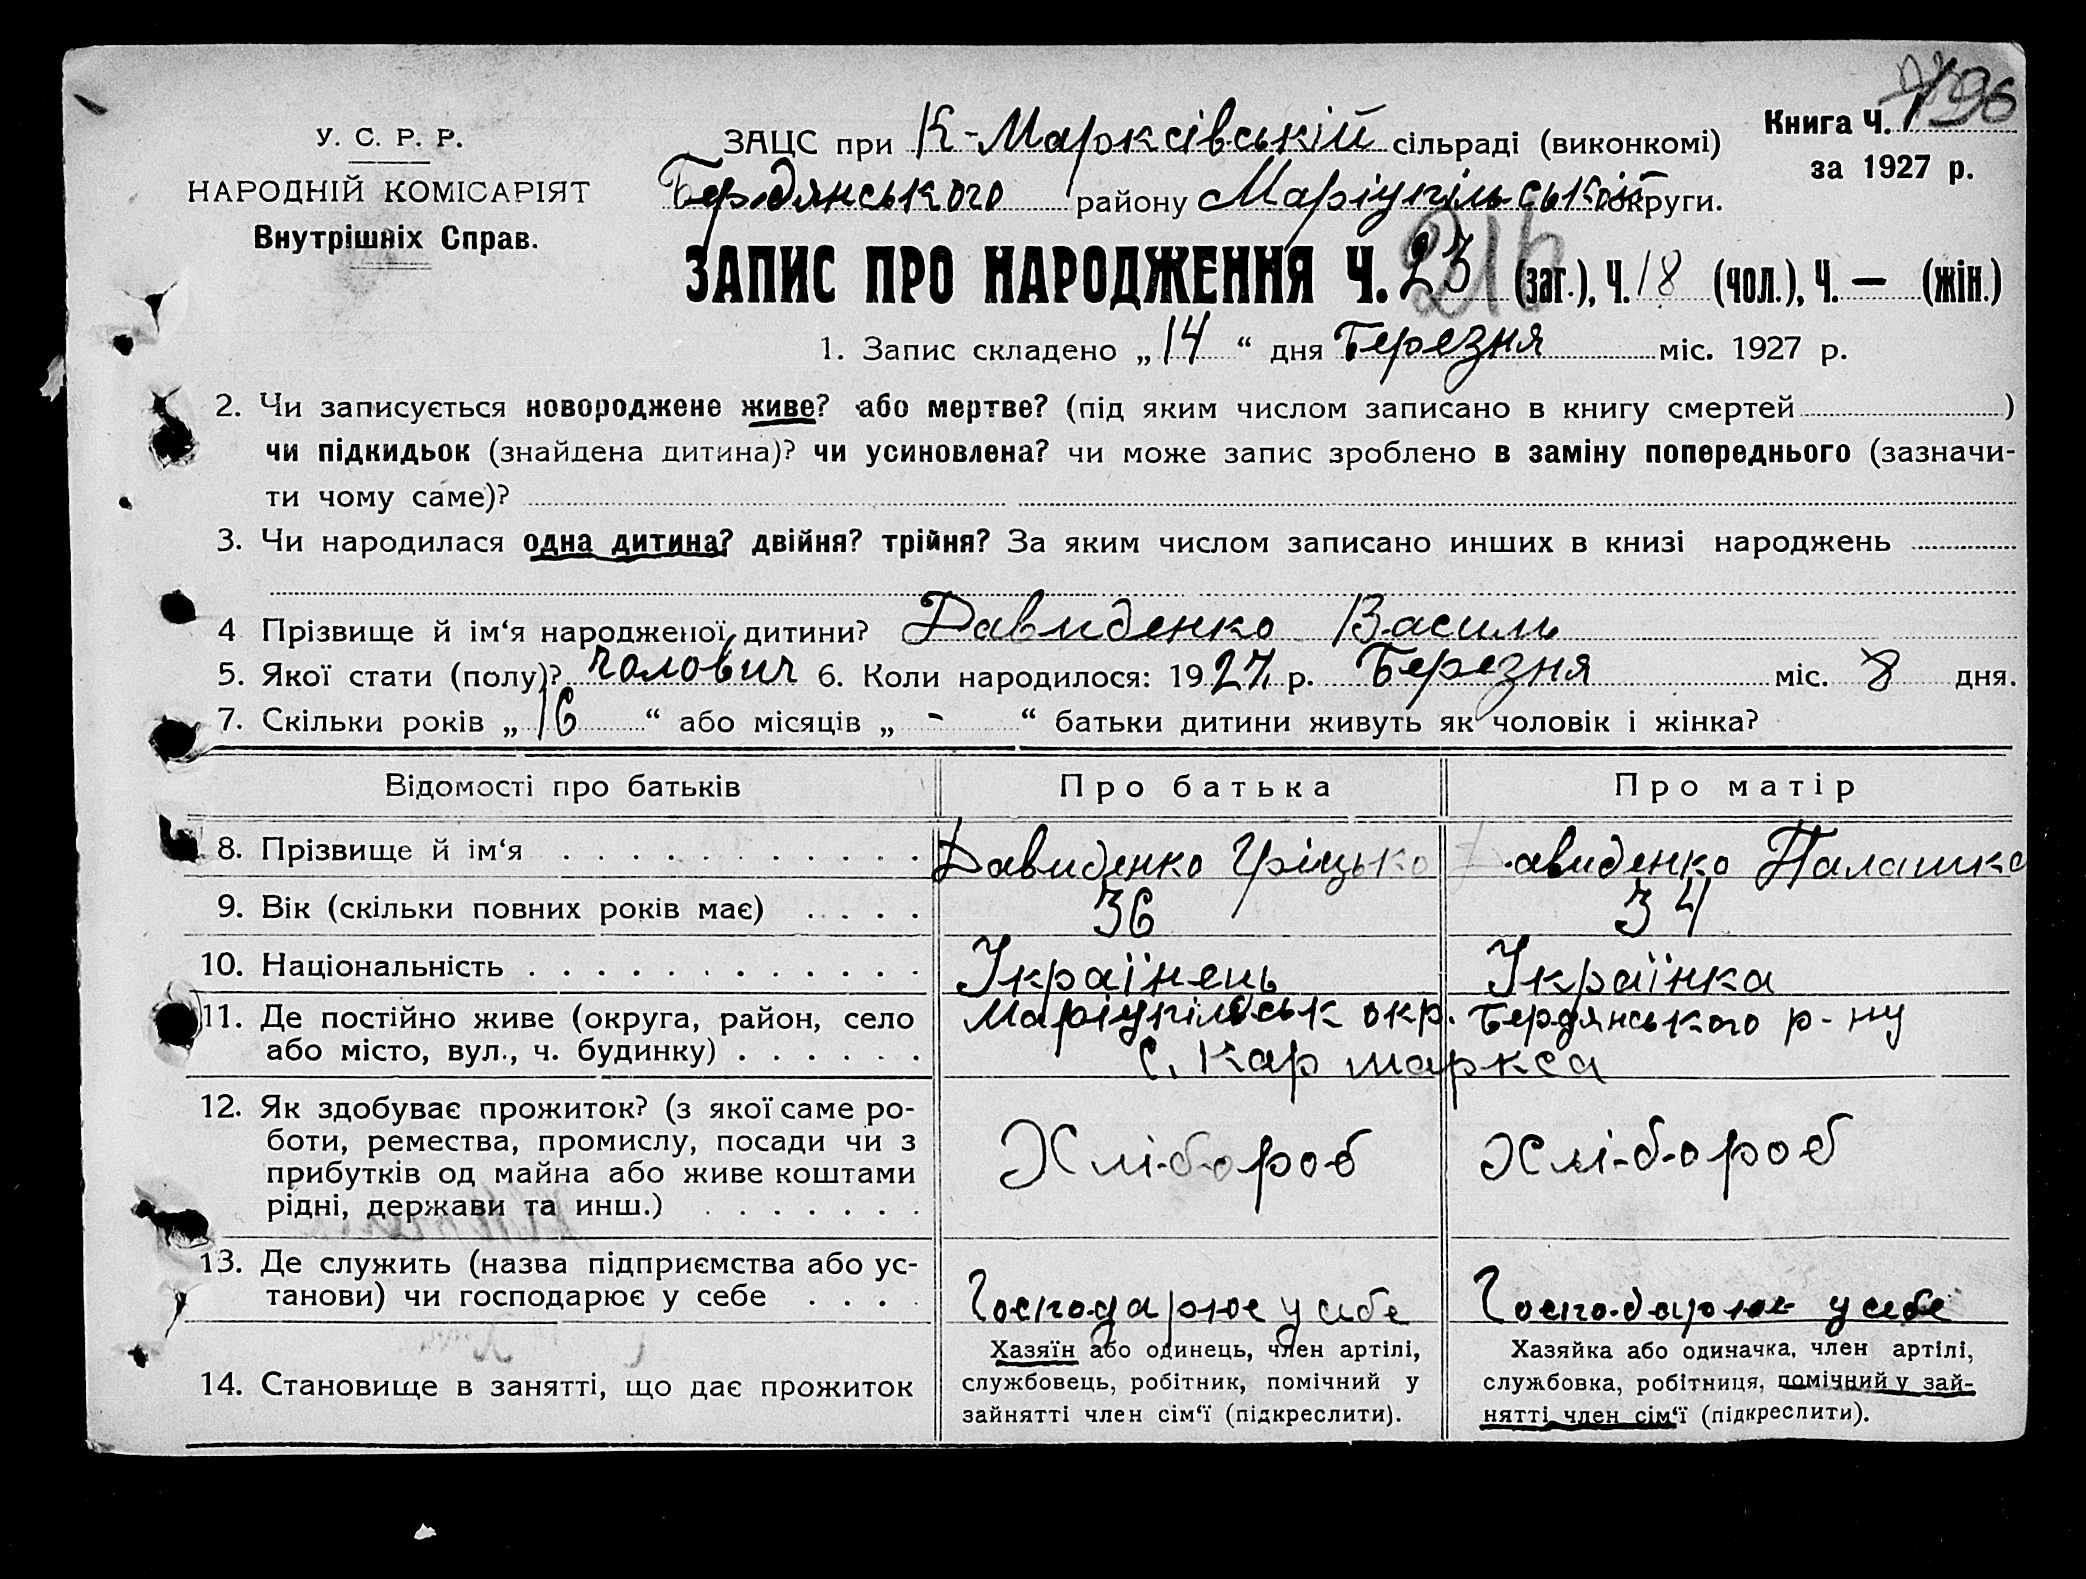 У. С. Р. Р.
НАРОДНІЙ КОМІСАРІЯТ
Внутрішніх Справ.
ЗАЦС при К-Марксівській сільраді (виконкомі)
Бердянського району Маріупільській округи.
Книга Ч. 1 96
за 1927 р.
ЗАПИС ПРО НАРОДЖЕННЯ Ч. 23 (заг.), Ч. 18 (чол.), Ч. — (жін.)
216
1. Запис складено „ 14 “ дня Березня міс. 1927 р.
2. Чи записується новороджене живе? або мертве? (під яким числом записано в книгу смертей )
чи підкидьок (знайдена дитина)? чи усиновлена? чи може запис зроблено в заміну попереднього (зазначи-
ти чому саме)?
3. Чи народилася одна дитина? двійня? трійня? За яким числом записано инших в книзі народжень
4 Прізвище й ім‘я народженої дитини? Давиденко Василь
5. Якої стати (полу)? чоловіч 6. Коли народилося: 1927 р. Березня міс. 8 дня.
7. Скільки років „ 16 “ або місяців „ - “ батьки дитини живуть як чоловік і жінка?
Відомості про батьків Про батька Про матір
8. Прізвище й ім‘я Давиденко Гріцько Давиденко Палашка
9. Вік (скільки повних років має) 36 34
10. Національність Українець Українка
11. Де постійно живе (округа, район, село Маріупільськ окр. Бердянського р-ну
або місто, вул., ч. будинку) с. Кар маркса
12. Як здобуває прожиток? (з якої саме ро-
боти, ремества, промислу, посади чи з Хлібороб Хлібороб
прибутків од майна або живе коштами
рідні, держави та инш.)
13. Де служить (назва підприємства або ус-
танови) чи господарює у себе Господарює у себе Господарює у себе
14. Становище в занятті, що дає прожиток
Хазяїн або одинець, член артілі,
службовець, робітник, помічний у
зайнятті член сім‘ї (підкреслити).
Хазяйка або одиначка, член артілі,
службовка, робітниця, помічний у зай-
нятті член сім‘ї (підкреслити).